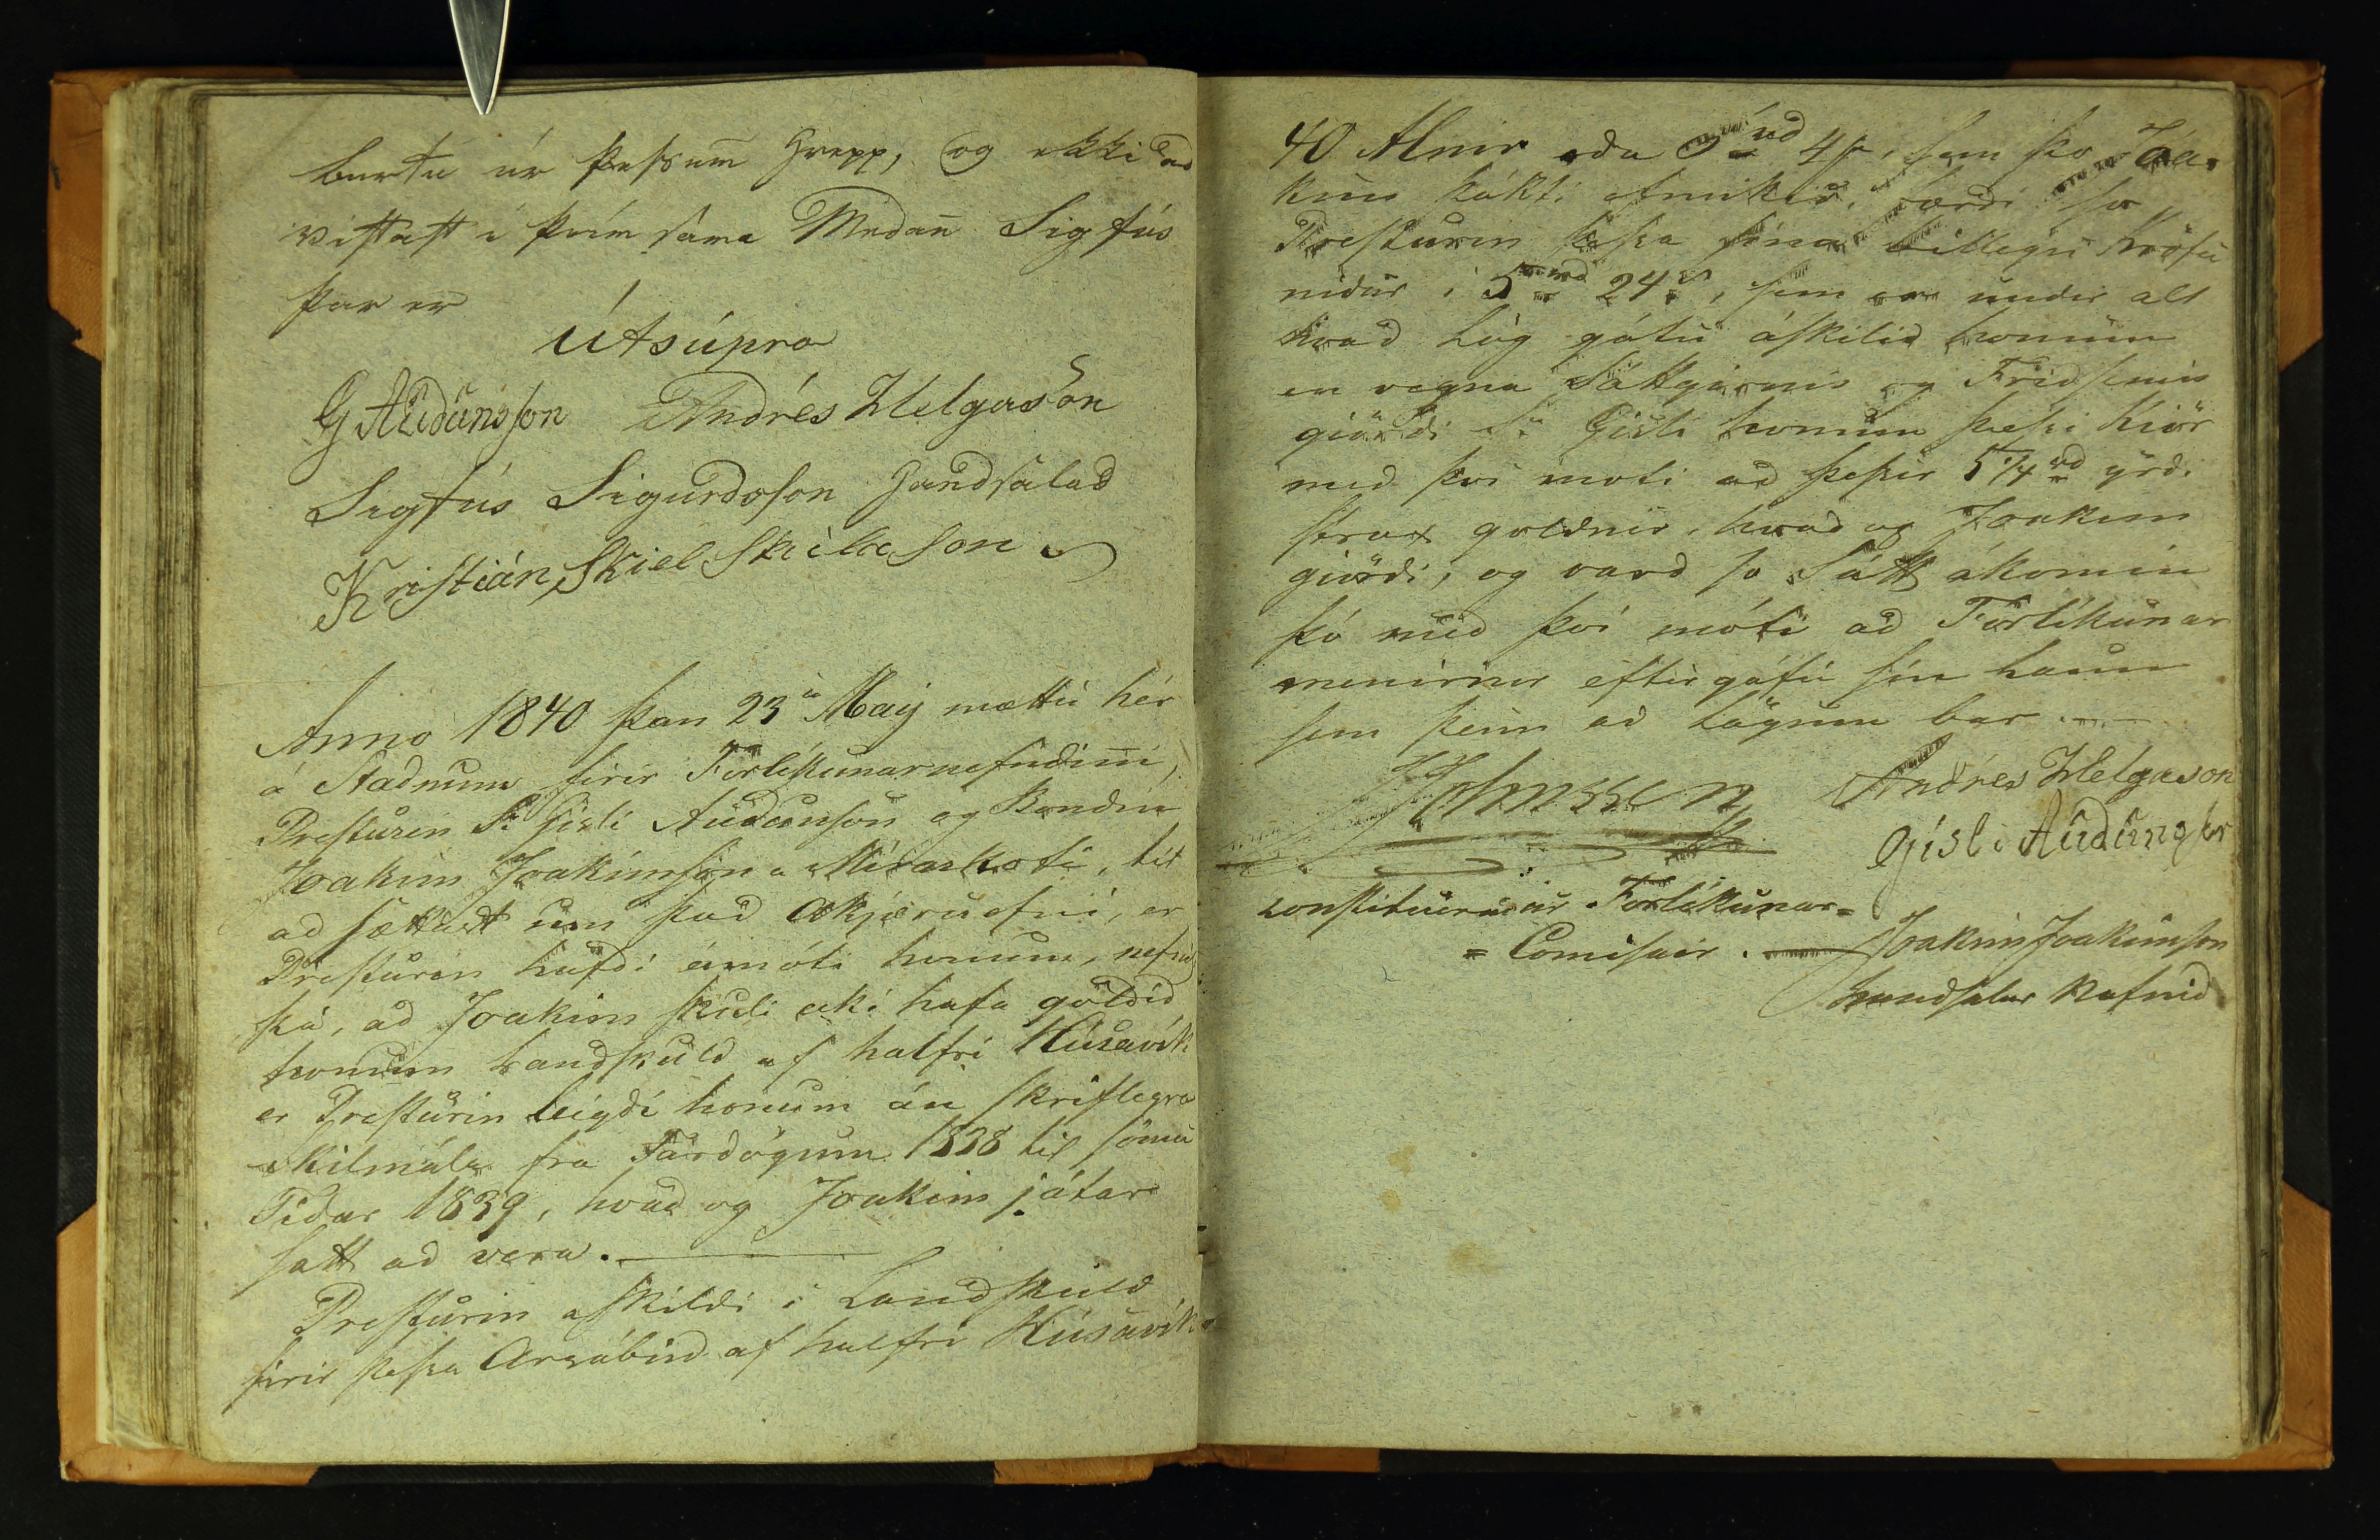 burtu úr þessum̅ Hrepp, og ekki ad
vistast i þeim sama Medan̅ Sigfús
þar er
Útsúpra
G Audunsson Andrés Helgason
Sigfús Sigurdsson Handsalad
Kristián Skiel Skúlason
Anno 1840 þan 23ia Maij mættu hér
á Stadnum firir Forlíkunarnefndin̅i,
Presturin Sr Gisli Audunson og Bondin
Joakim Joakimson a Mírarkoti, til
ad sættast um þad Ákjæruefni, er
Presturin hafdi ámóti honum, nefni
þá, ad Joakim skuli ecki hafa goldid
honum Landskuld af halfri Húsavík
er Presturin leigdi honum án skriflegra
Skilmála fra Fardögum 1838 til sömu
Tídar 1839, hvad og Joakim játar
satt ad vera.
Presturin askildi i Landskuld
firir þessa Arsábúd af halfri Húsavík
40 Alnir eda rd 4 s, sem þo Joa-
kim þókti ofmikid, færdi so
Presturin þessa sína billegu Kröfu
nidur i 5 rd 24 s, sem er undir alt
hvad Lög gátu áskilid honum
en vegna Sáttgirnis og Fridsemis
giördi Sr Gisli honum þessi kiör
med þvi moti ad þessir 5 1/4 rd yrdi
strax goldnir, hvad og Joakim
giördi, og vard so Sátt ákomin
þó med þvi móti ad Forlíkunar
menirnir eftirgáfu sín Laun
sem þeim ad Lögum bar.
Andrés Helgason
Gísli Audunsson
constitueradur Forlíkunar-
- Comisair. Joakim Joakimson
handsalar Nafnid